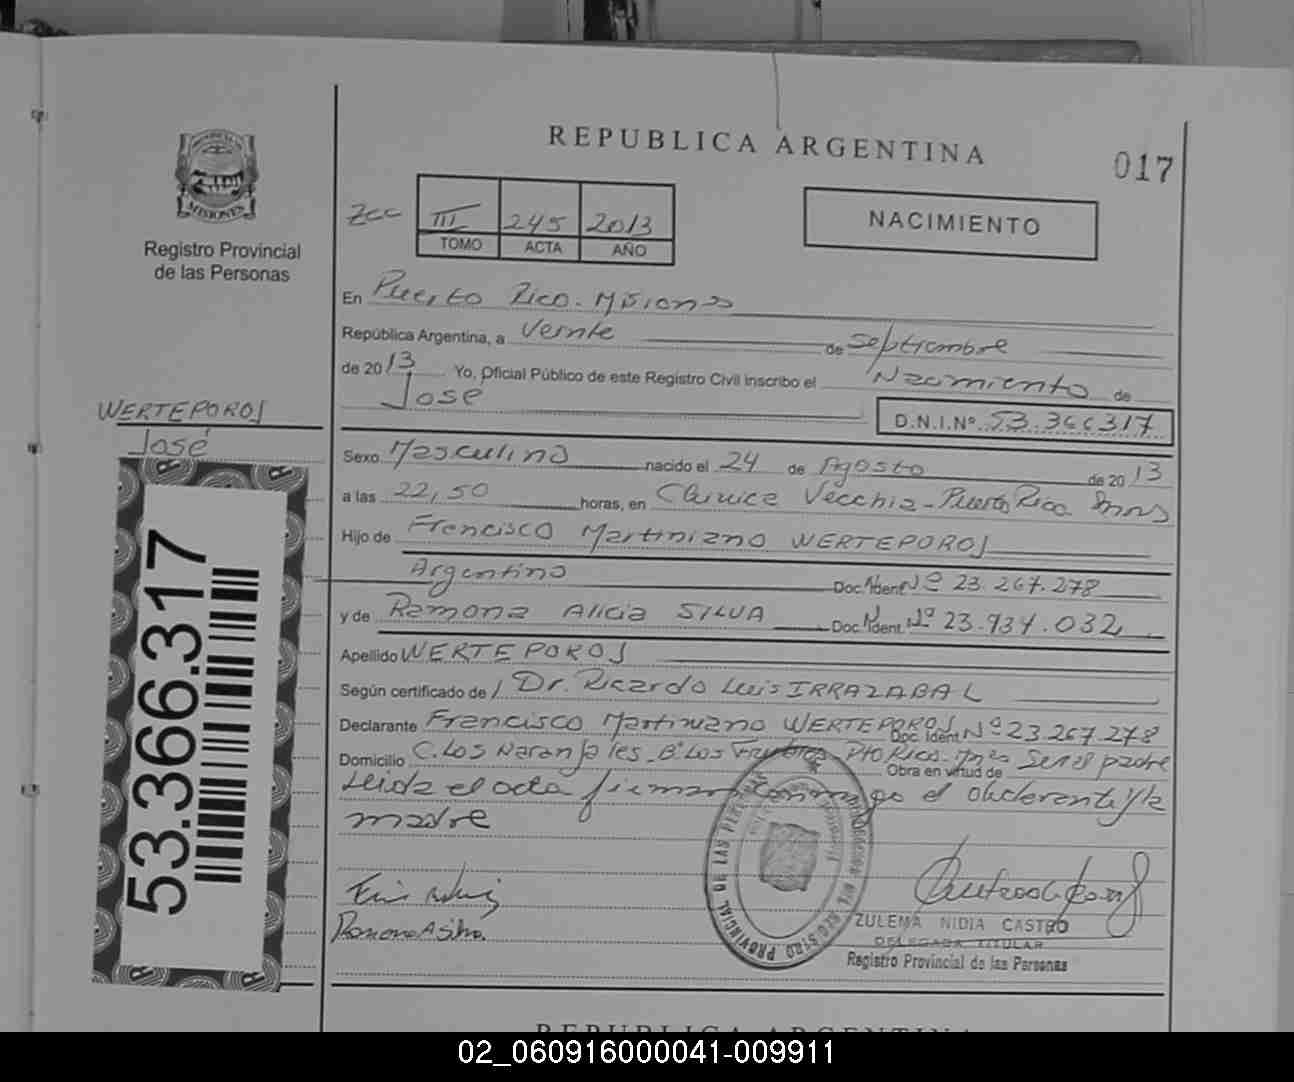 REPUBLICA ARGENTINA
017
MISIONES
Registro Provincial
de las Personas
III 245 2013
TOMO ACTA AÑO
NACIMIENTO
En Puerto Rico. Misiones
República Argentina, a Veinte de Septiembre
de 2013 Yo, Oficial Público de este Registro Civil inscribo el Nacimiento de
José
D.N.I.Nº 53.366317
WERTEPOROS
José
Sexo Masculino nacido el 24 de Agosto de 2013
a las 22,50 horas, en Clinica Vecchia - Puerto Rico Mnes
Hijo de Francisco Martiniano WERTEPOROS
Argentino Doc. Ident. Nº 23.267.278
y de Ramona Alicia SILVA Doc. Ident. Nº 23.934.032
Apellido WERTEPOROS
Según certificado de Dr. Ricardo Luis IRRAZABAL
Declarante Francisco Martiniano WERTEPOROS Doc. Ident. Nº 23.267.278
Domicilio C. Los Naranjales. Bº Los Pto Rico. Mnes Obra en virtud de Ser el padre
Leida el acta firman conmigo el declarante y la
madre
53.366.317
Ramona A Silva
REGISTRO PROVINCIAL DE LAS PERSONAS
ZULEMA NIDIA CASTRO
DELEGADA TITULAR
Registro Provincial de las Personas
REPUBLICA ARGENTINA
02_060916000041-009911